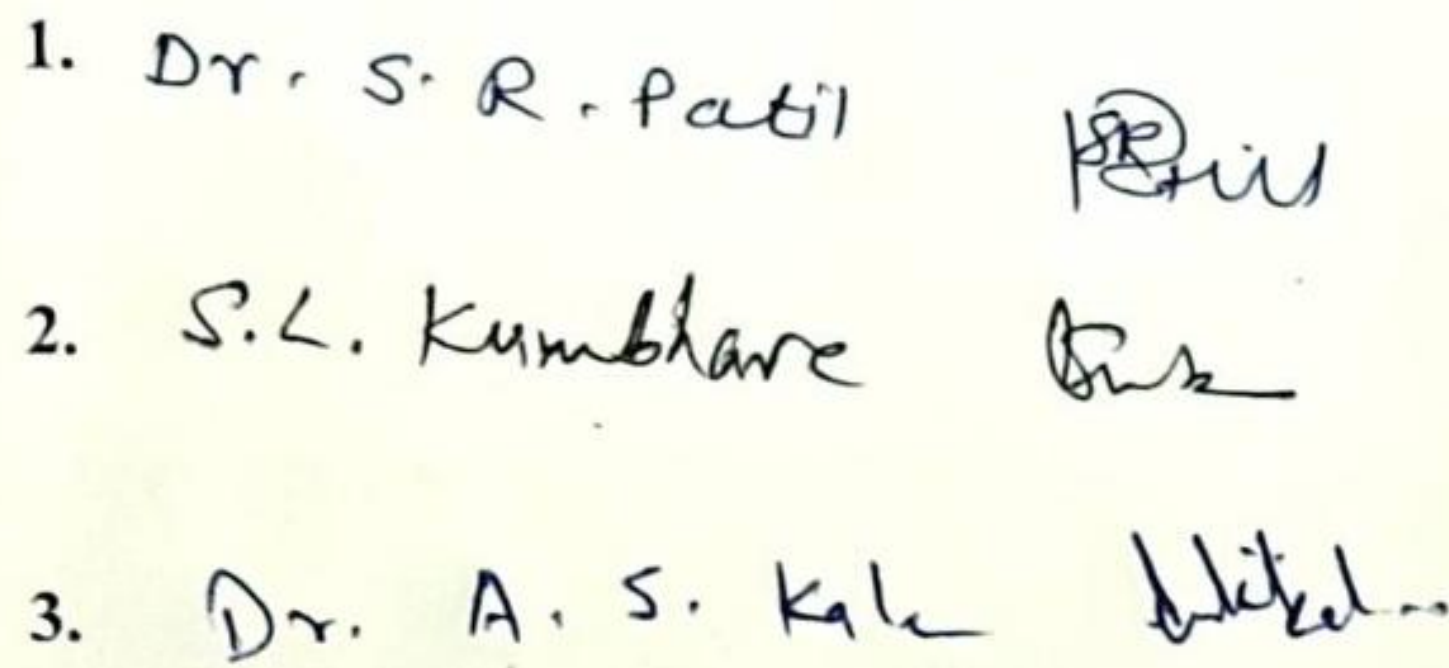 1. Dr. S. R. Patil
2. S.L. Kumbhare
3. Dr. A. S. Kale